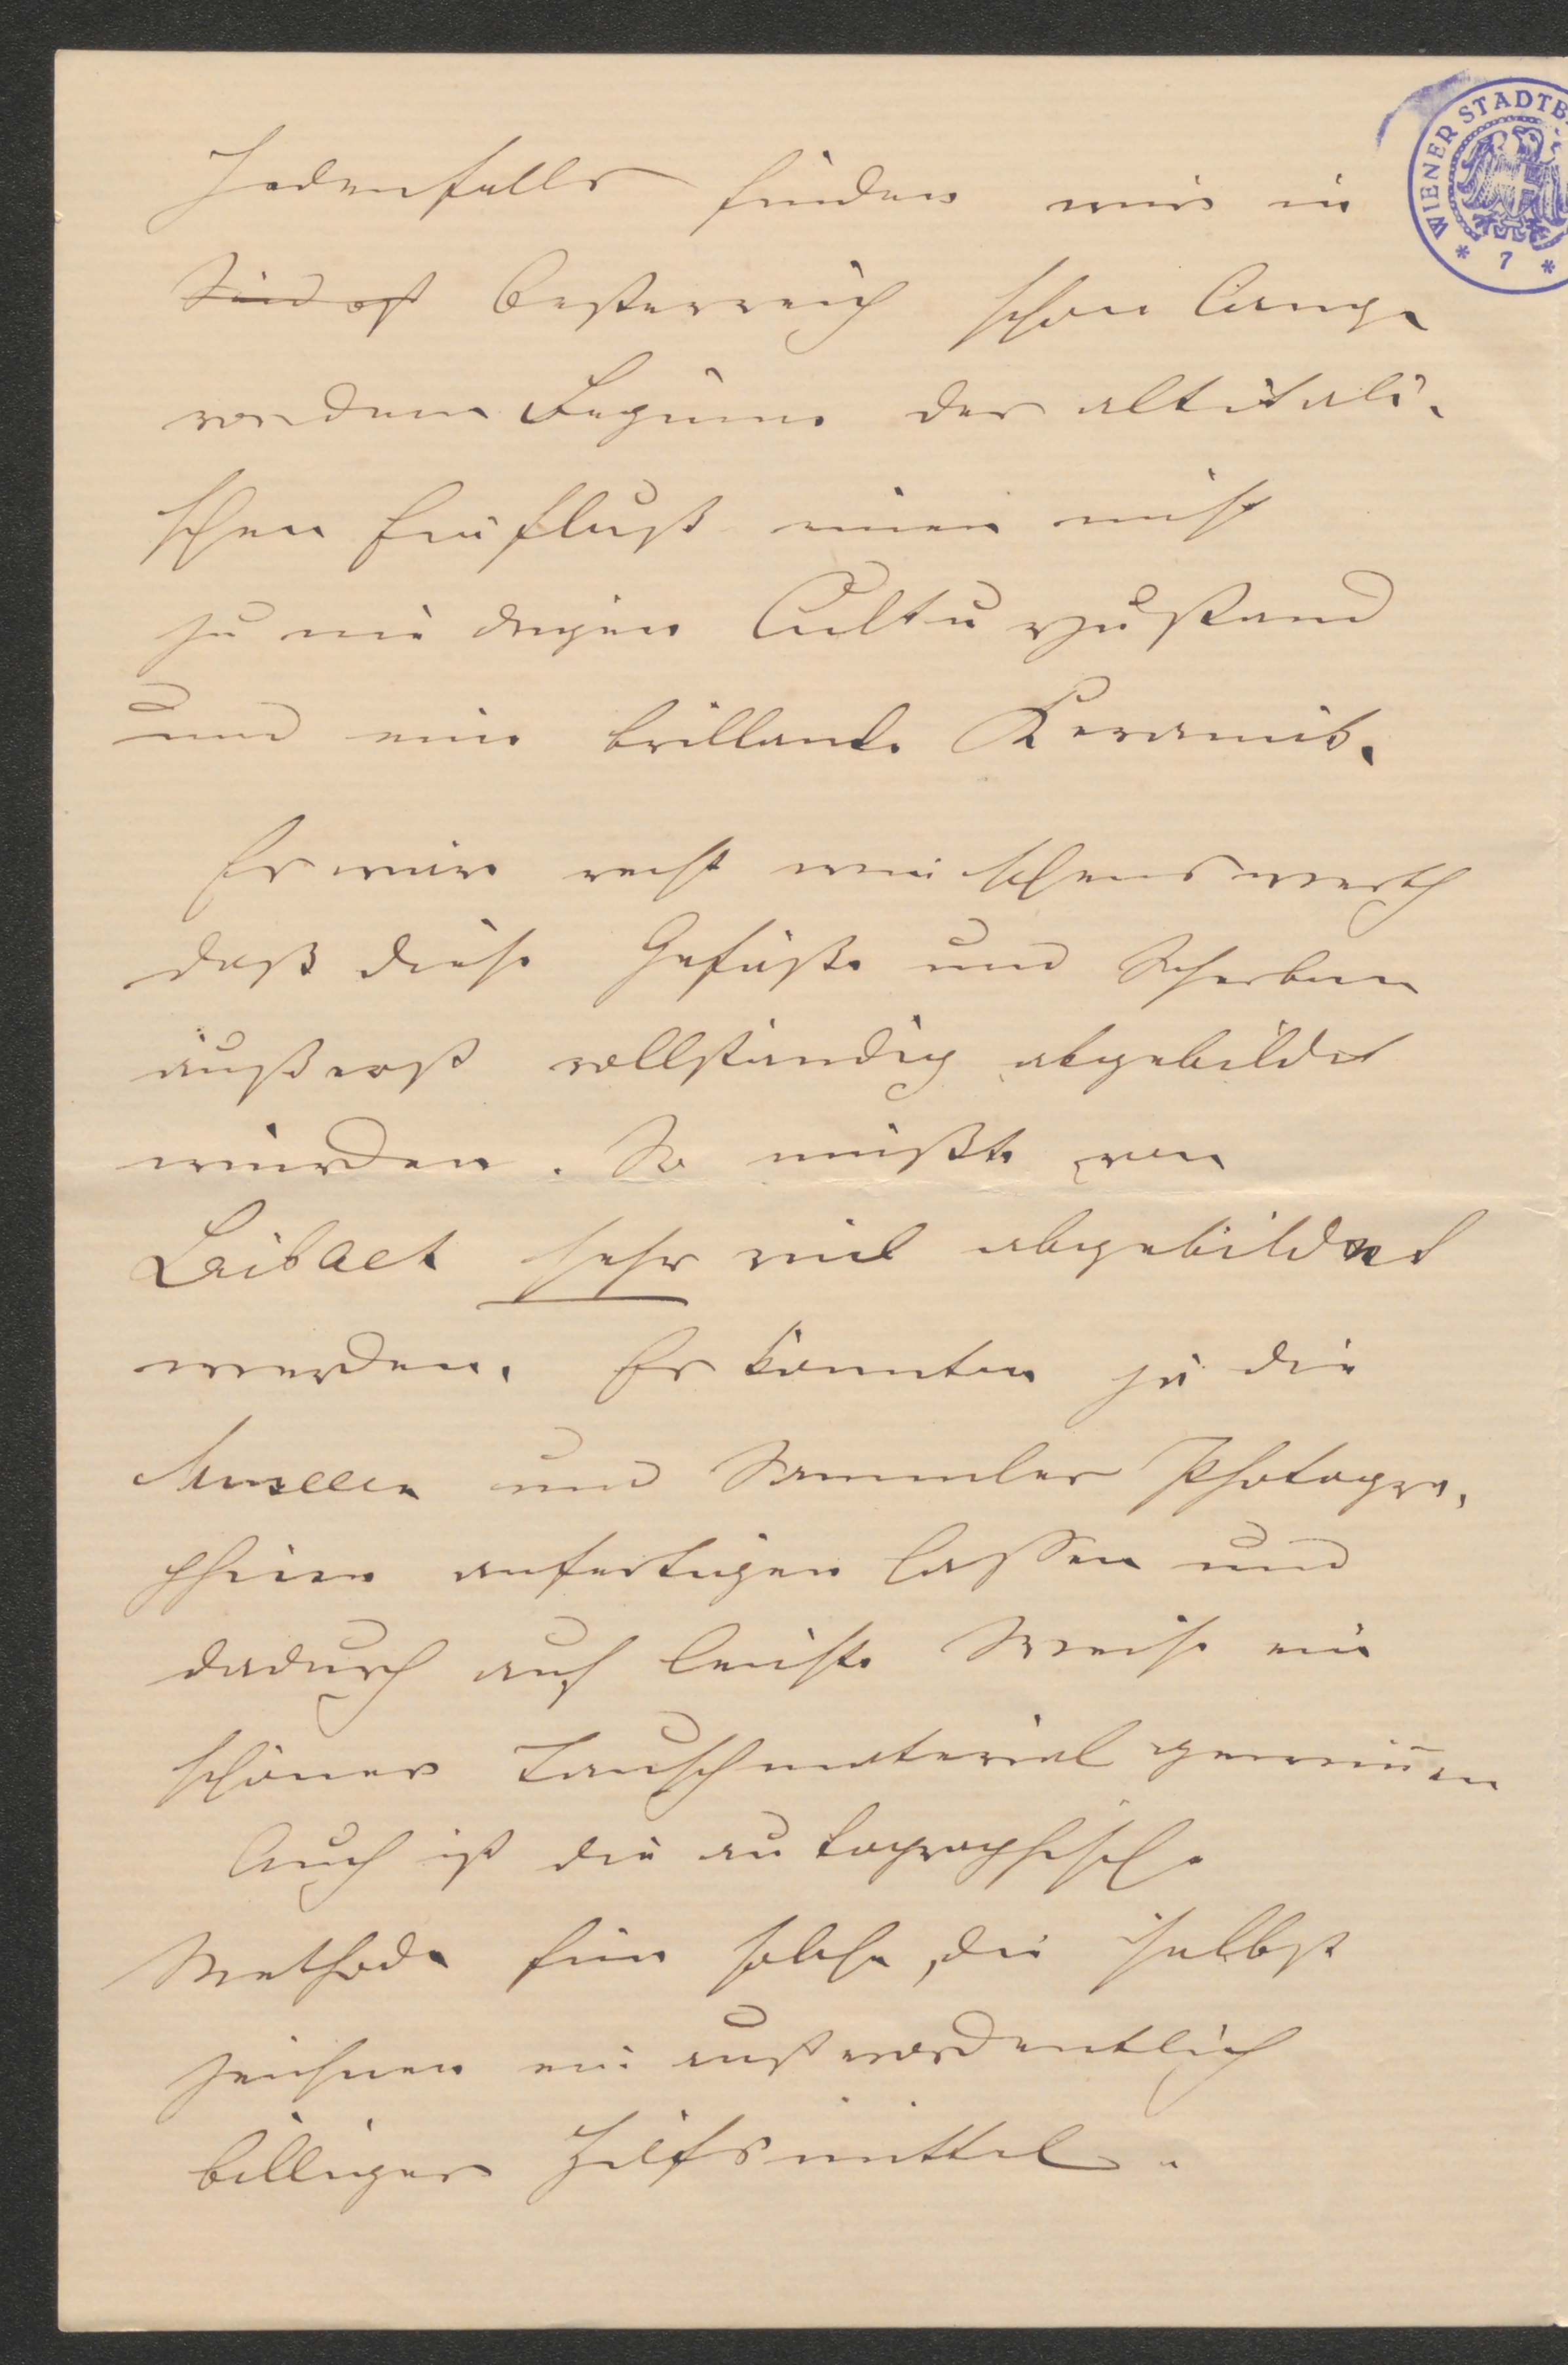 Jedenfalls finden wir in
Südost Oesterreich schon lange
vor dem Beginne der altitali-
schen Einfluß einen nicht
zu niedrigen Culturzustand
und eine brillante Keramik.
Es wäre recht wünschenswerth
daß diese Gefäße und Scherben
äußerst vollständig abgebildet
würden. So müßte von
Laibach sehr viel abgebildet
werden. Es könnten ja die
Museen und Sammler Photogra-
phien anfertigen lassen und
dadurch auf leichte Weise ein
schönes Tauschmaterial gewinnen
Auch ist die autographische
Methode für solche, die selbst
zeichnen ein außerordentlich
billiges Hilfsmittel.
WIENER STADTB
* 7 *